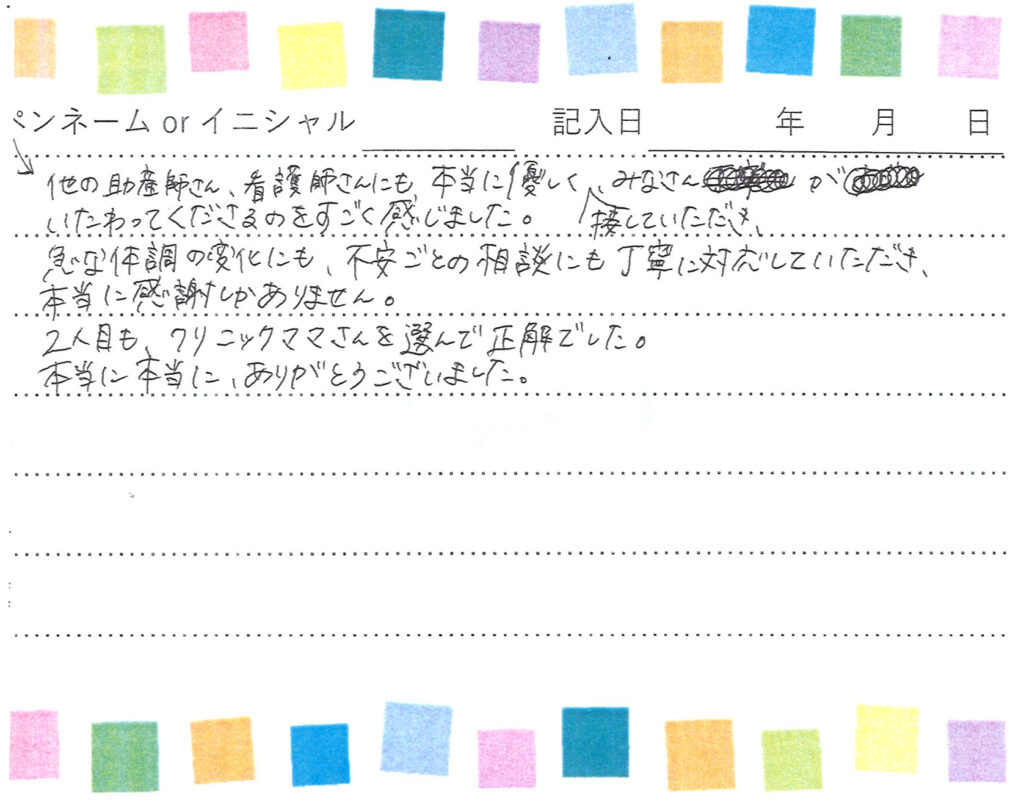 ペンネーム or イニシャル 記入日 年 月 日
他の助産師さん、看護師さんにも、本当に優しく、接していただき、みなさんが
いたわってくださるのをすごく感じました。
急な体調の変化にも、不安ごとの相談にも丁寧に対応していただき、
本当に感謝しかありません。
2人目も、クリニックママさんを選んで正解でした。
本当に本当に、ありがとうございました。